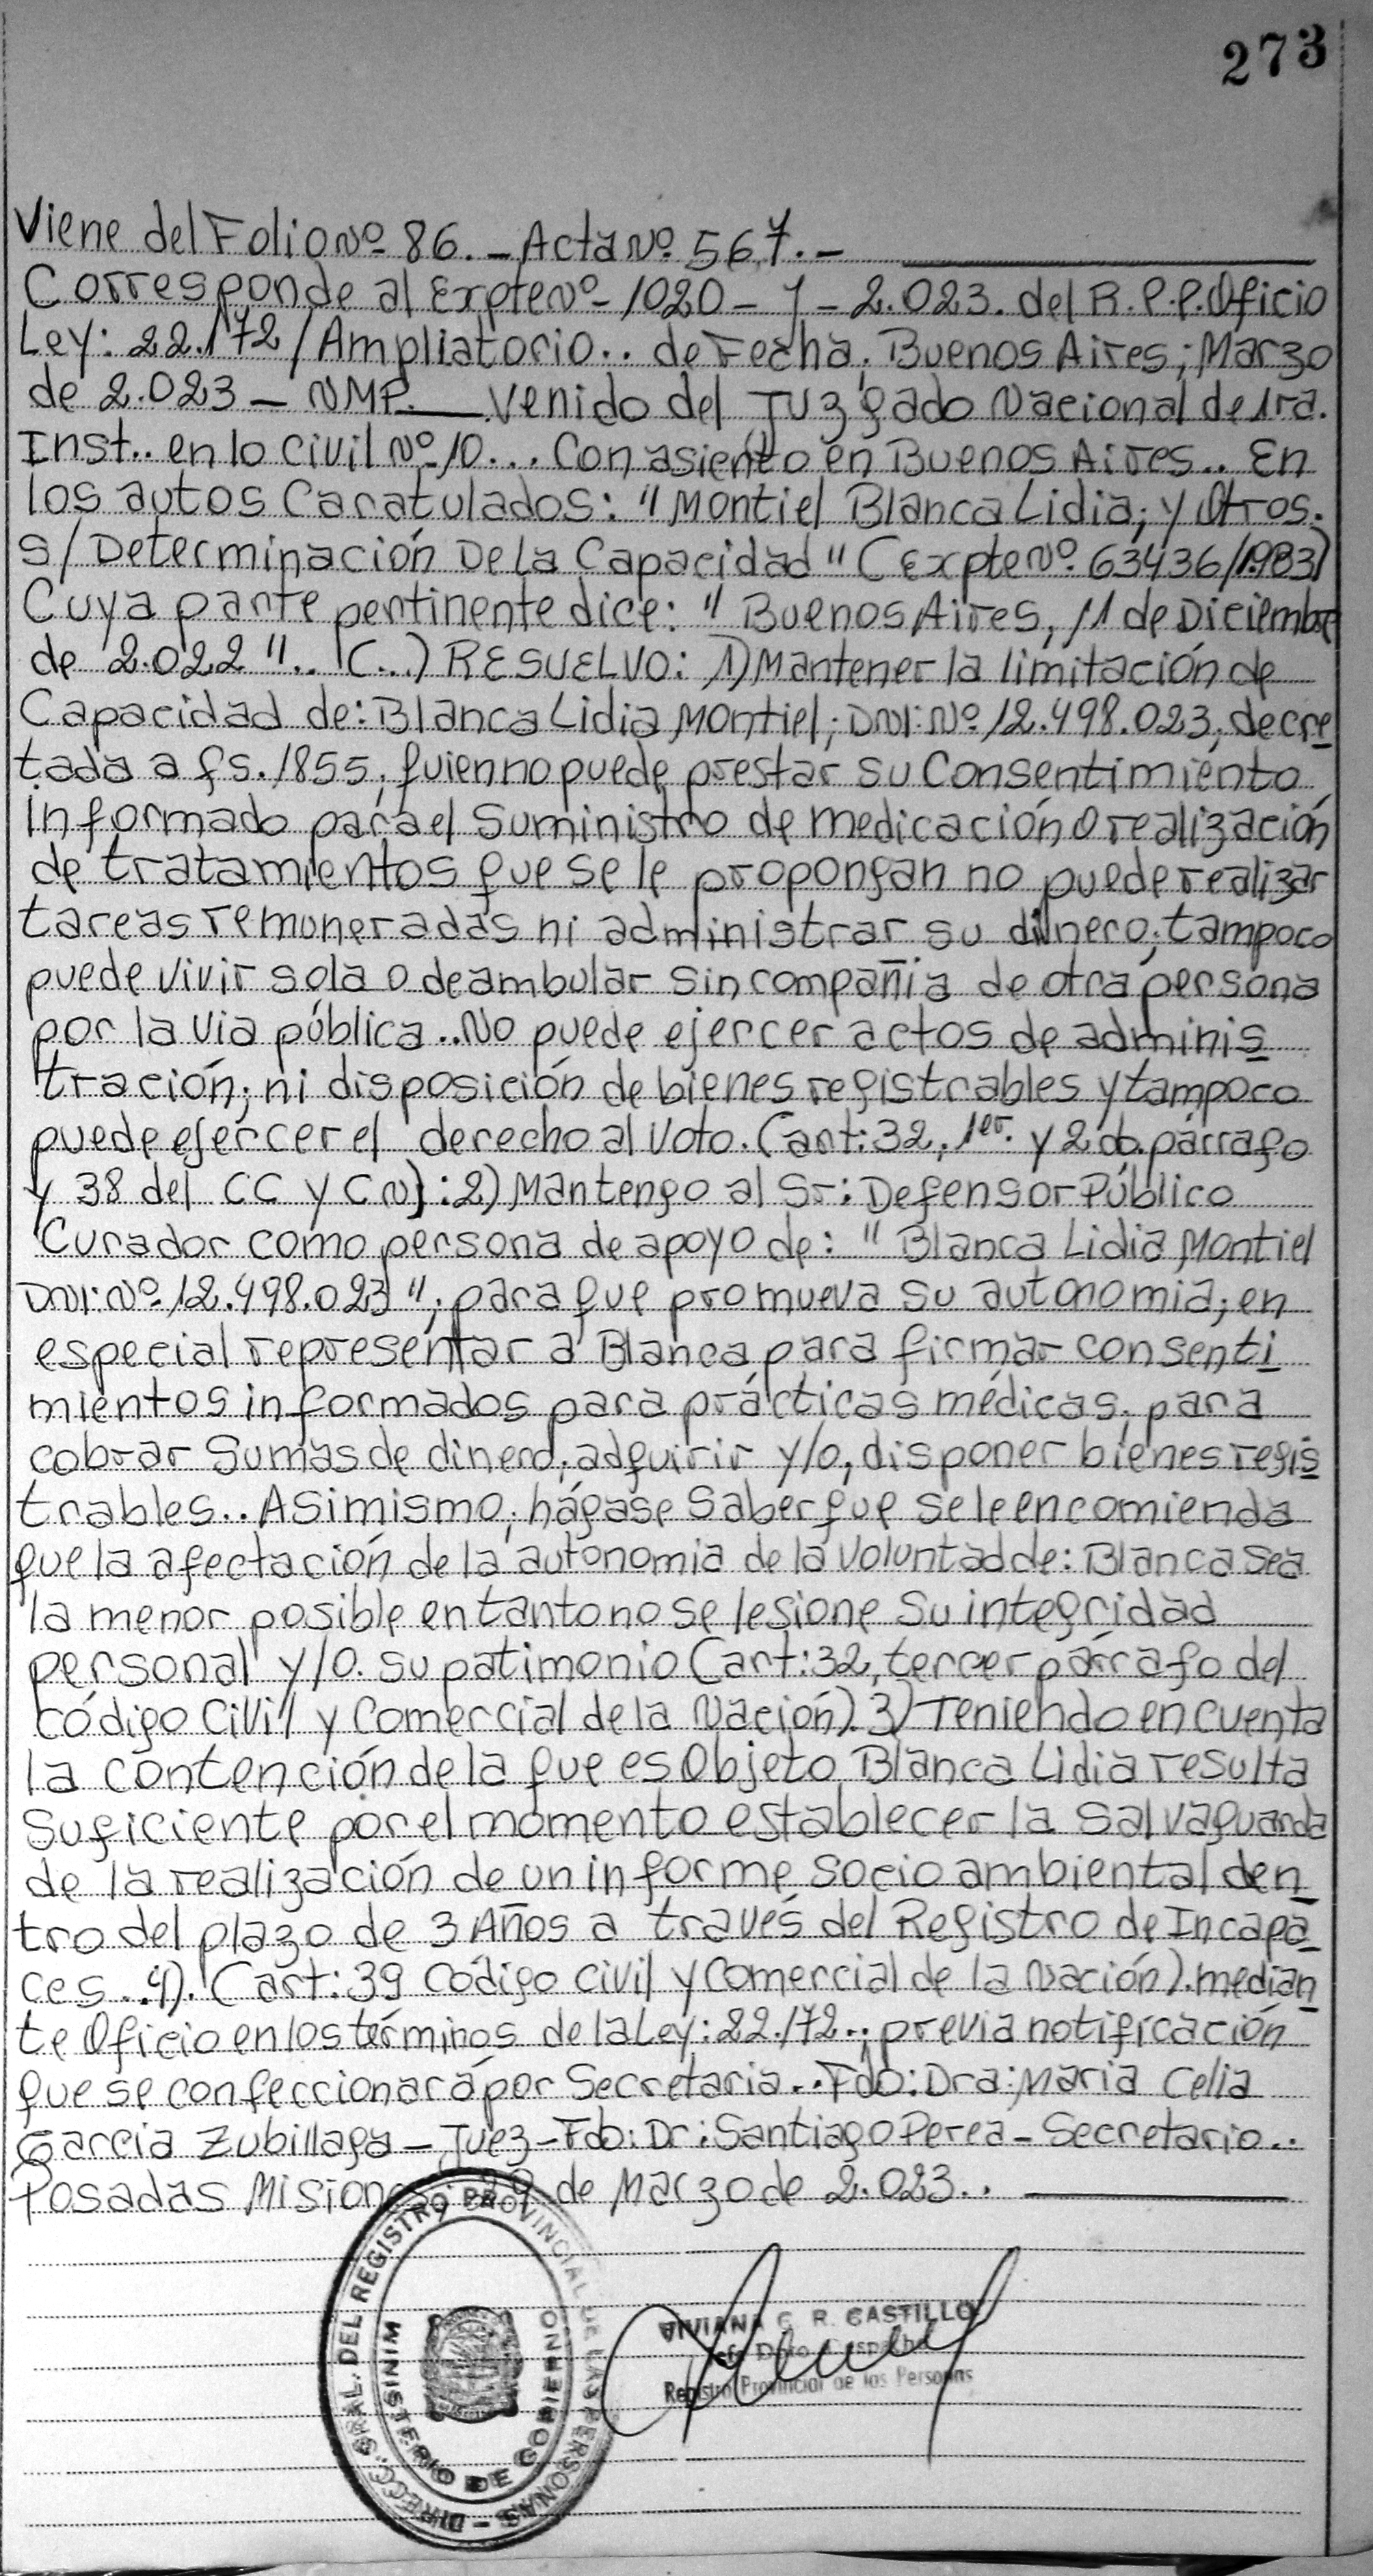 273
Viene del Folio Nº 86. - Acta Nº 567. -
Corresponde al Expte Nº - 1020 - Y - 2.023. del R.P.P. Oficio
Ley: 22.172 / Ampliatorio.. de Fecha: Buenos Aires; Marzo
de 2.023 - NMP. Venido del Juzgado Nacional de 1ra.
Inst.. en lo Civil Nº 10... Con asiento en Buenos Aires.. En
los autos Caratulados: "Montiel Blanca Lidia; y Otros.
S/ Determinación De la Capacidad" (Expte Nº. 63436/1983)
Cuya parte pertinente dice: " Buenos Aires, 11 de Diciembre
de 2.022".. (...) RESUELVO: 1) Mantener la limitación de
Capacidad de: Blanca Lidia Montiel; DNI: Nº 12.498.023; decre
tada a fs. 1855; quien no puede prestar su Consentimiento
informado para el Suministro de medicación o realización
de tratamientos que se le propongan no puede realizar
tareas remuneradas ni administrar su dinero; tampoco
puede vivir sola o deambular sin compañia de otra persona
por la via pública.. No puede ejercer actos de adminis
tración; ni disposición de bienes registrables y tampoco
puede ejercer el derecho al Voto. (art: 32, 1er. y 2do. párrafo
y 38 del CC y CN): 2) Mantengo al Sr: Defensor Público
Curador como persona de apoyo de: " Blanca Lidia Montiel
DNI: Nº 12.498.023"; para que promueva su autonomia; en
especial representar a Blanca para firmar consenti
mientos informados para prácticas médicas; para
cobrar Sumas de dinero; adquirir y/o, disponer bienes regis
trables.. Asimismo; hágase Saber que se le encomienda
que la afectación de la autonomia de la Voluntad de: Blanca sea
la menor posible en tanto no se lesione su integridad
personal y/o. su patimonio (art: 32, tercer párrafo del
código Civil y Comercial de la Nación). 3) Teniendo en cuenta
la contención de la que es Objeto Blanca Lidia resulta
Suficiente por el momento establecer la Salvaguarda
de la realización de un informe socio ambiental den
tro del plazo de 3 Años a través del Registro de Incapa
ces.. 4). (art: 39 Código Civil y Comercial de la Nación). median
te Oficio en los términos de la Ley: 22.172..; previa notificación
que se confeccionará por Secretaria.. Fdo: Dra: Maria Celia
Garcia Zubillaga - Juez - Fdo: Dr: Santiago Perea - Secretario..
Posadas Misiones; 29 de Marzo de 2.023..
DIRECC. GRAL. DEL REGISTRO PROVINCIAL DE LAS PERSONAS -
MINISTERIO DE GOBIERNO
VIVIANA G. R. CASTILLO
Jefe Dpto.
Registro Provincial de las Personas